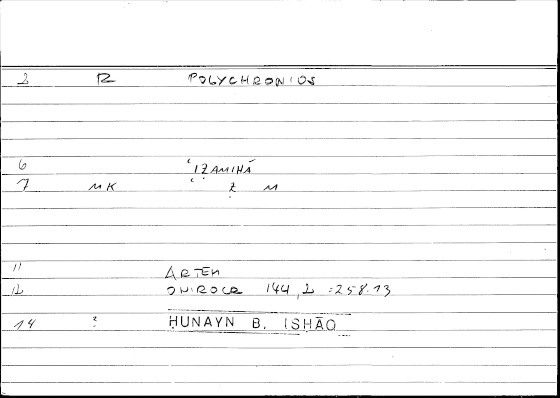 2 R POLYCHRONIOS
6 ʿIẒAMIHĀ
7 MK ʿ Ẓ M
11 ARTEM
12 ONIROCR 144, 2 = 258.13
14 : HUNAYN B. ISHĀQ